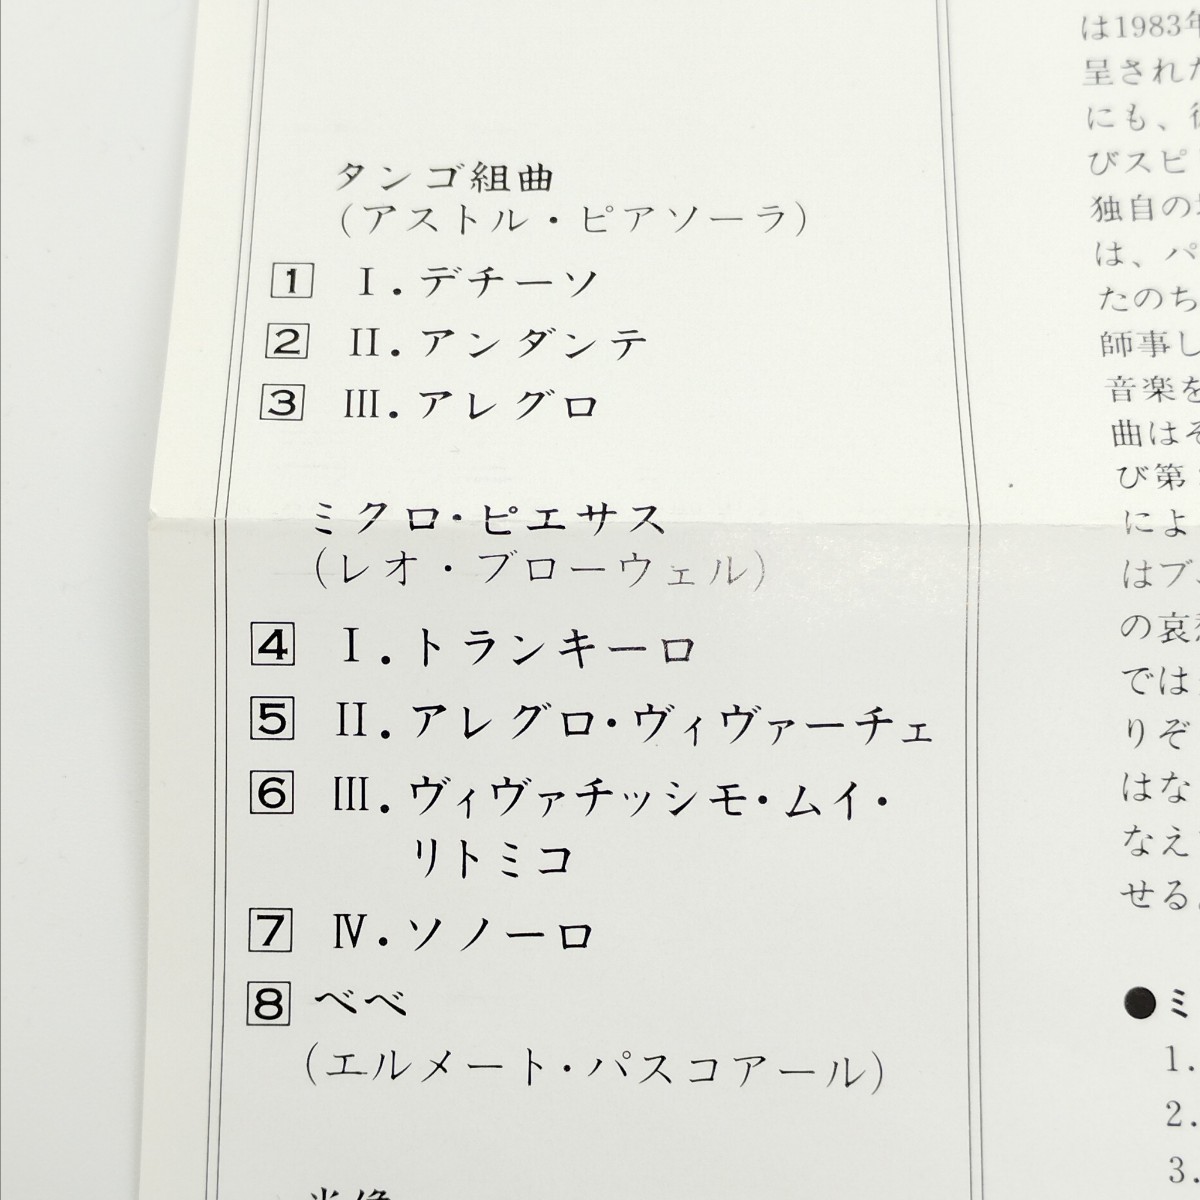 タンゴ組曲
(アストル・ピアソーラ)
1 I.デチーソ
2 II.アンダンテ
3 III.アレグロ
ミクロ・ピエサス
(レオ・ブローウェル)
4 I.トランキーロ
5 II.アレグロ・ヴィヴァーチェ
6 III.ヴィヴァチッシモ・ムイ・
リトミコ
7 IV.ソノーロ
8 べべ
(エルメート・パスコアール)
は1983年
呈された
にも、
びスピ
独自の
は、パ
たのち
師事し
音楽を
曲はそ
び第
によ
はブ
の哀
では
りぞ
はな
なえ
せる
●ミ
1.
2.
3.